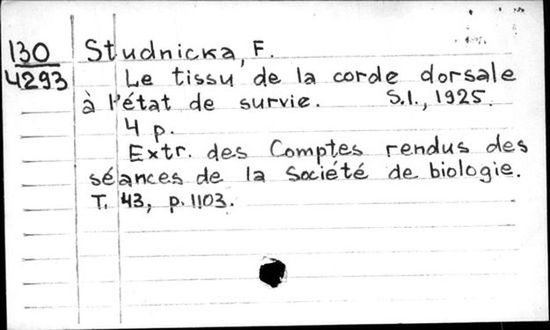 130 Studnicka, F.
4293 Le tissu de la corde dorsale
à l'état de survie. S.l., 1925.
4 p.
Extr. des Comptes rendus des
séances de la Société de biologie.
T. 43, p. 1103.